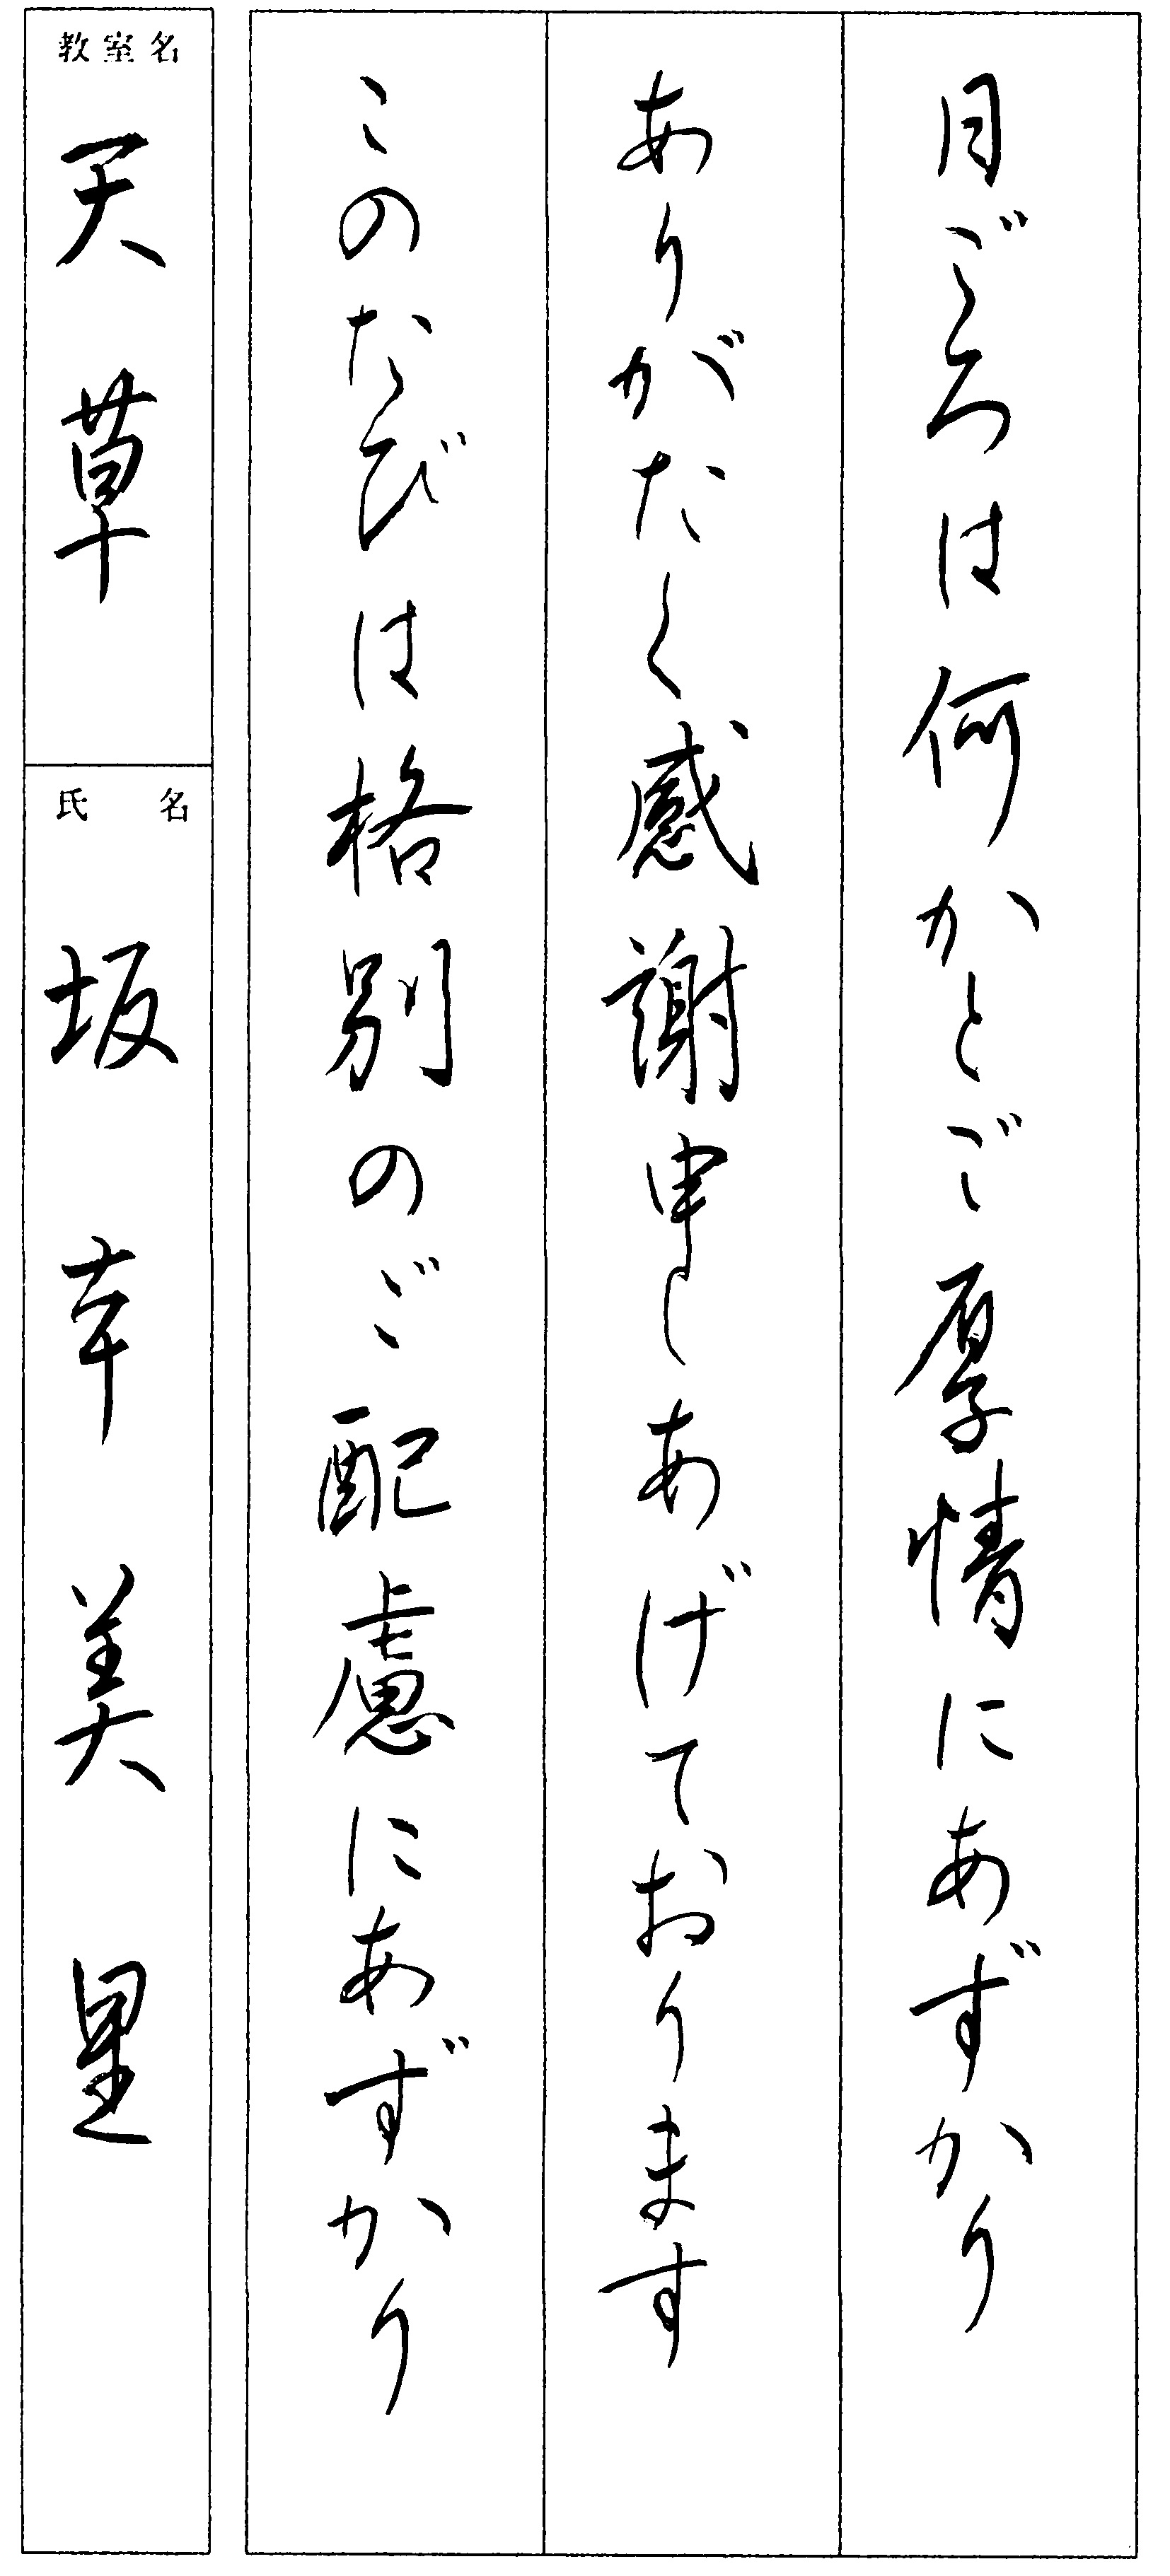 日ごろは何かとご厚情にあずかり
ありがたく感謝申しあげております
このたびは格別のご配慮にあずかり
教室名
天草
氏名
坂本美里